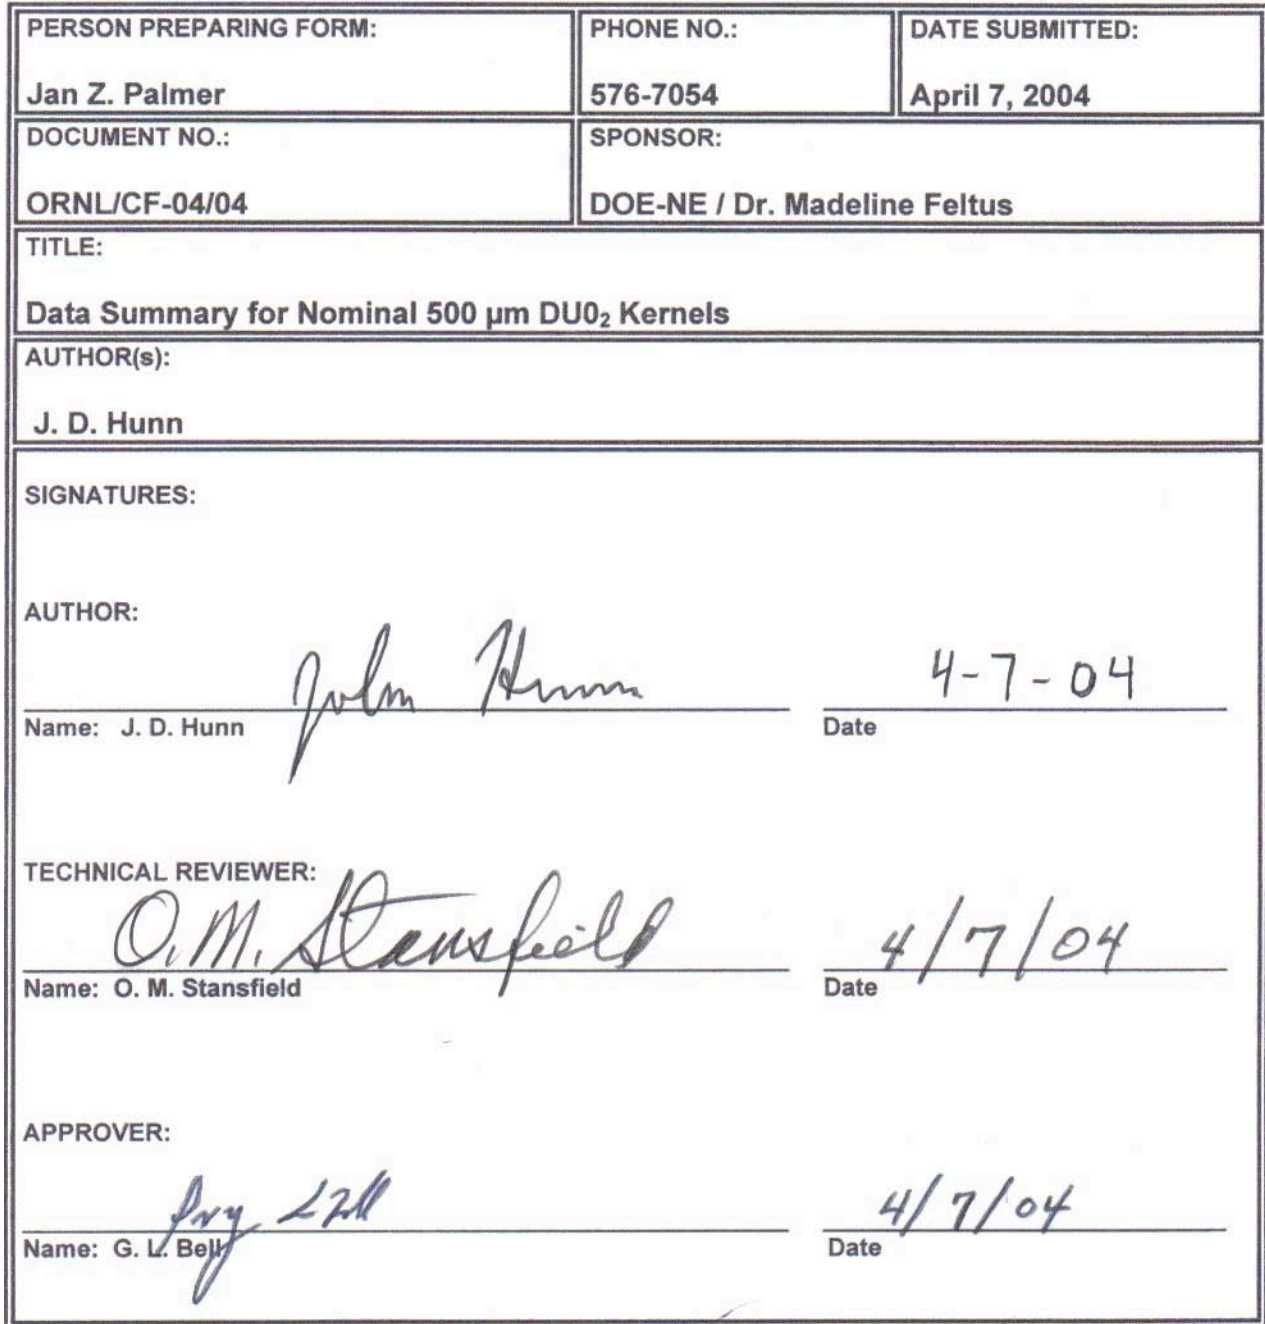 PERSON PREPARING FORM:
Jan Z. Palmer
PHONE NO.:
576-7054
DATE SUBMITTED:
April 7, 2004
DOCUMENT NO.:
ORNL/CF-04/04
SPONSOR:
DOE-NE / Dr. Madeline Feltus
TITLE:
Data Summary for Nominal 500 µm DU0₂ Kernels
AUTHOR(s):
J. D. Hunn
SIGNATURES:
AUTHOR:
John Hunn
4-7-04
Name: J. D. Hunn
Date
TECHNICAL REVIEWER:
O.M. Stansfield
4/7/04
Name: O. M. Stansfield
Date
APPROVER:
4/7/04
Name: G. L. Bell
Date